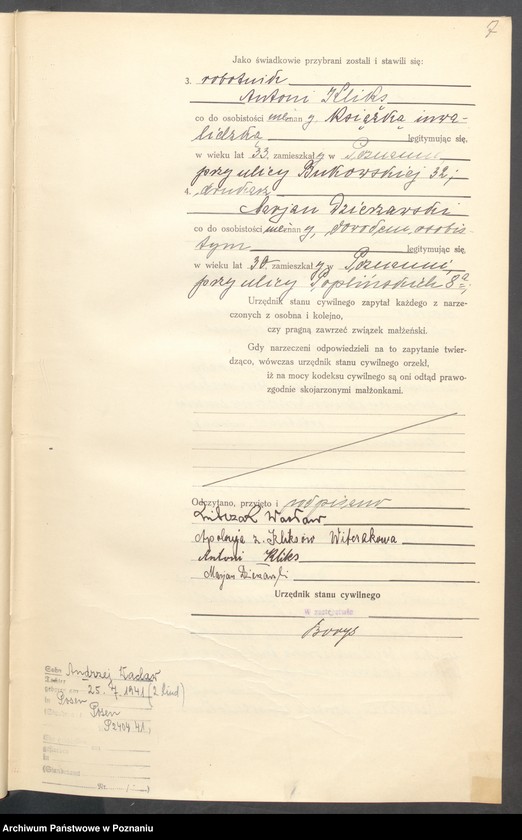 7
Jako świadkowie przybrani zostali i stawili się:
3. robotnik
Antoni Kliks
co do osobistości znany książką inwa-
lidzką legitymując się,
w wieku lat 33, zamieszkały w Poznaniu
przy ulicy Bukowskiej 32;
4. drukarz
Marjan Dzierzawski
co do osobistości znany, dowodem osobis-
tym legitymując się,
w wieku lat 30, zamieszkały w Poznaniu,
przy ulicy Poplińskich 8a;
Urzędnik stanu cywilnego zapytał każdego z narze-
czonych z osobna i kolejno,
czy pragną zawrzeć związek małżeński.
Gdy narzeczeni odpowiedzieli na to zapytanie twier-
dząco, wówczas urzędnik stanu cywilnego orzekł,
iż na mocy kodeksu cywilnego są oni odtąd prawo-
zgodnie skojarzonymi małżonkami.
Odczytano, przyjęto i podpisano
Wacław
Apolonja z Kliksów
Antoni Kliks
Marjan Dzierzawski
Urzędnik stanu cywilnego
w zastępstwie
Borys
Sohn Andrzej Wacław
Tochter
geboren am 25. 7. 1941 (2 Kind)
in Posen
Posen
2404/41
Nr.
Archiwum Państwowe w Poznaniu